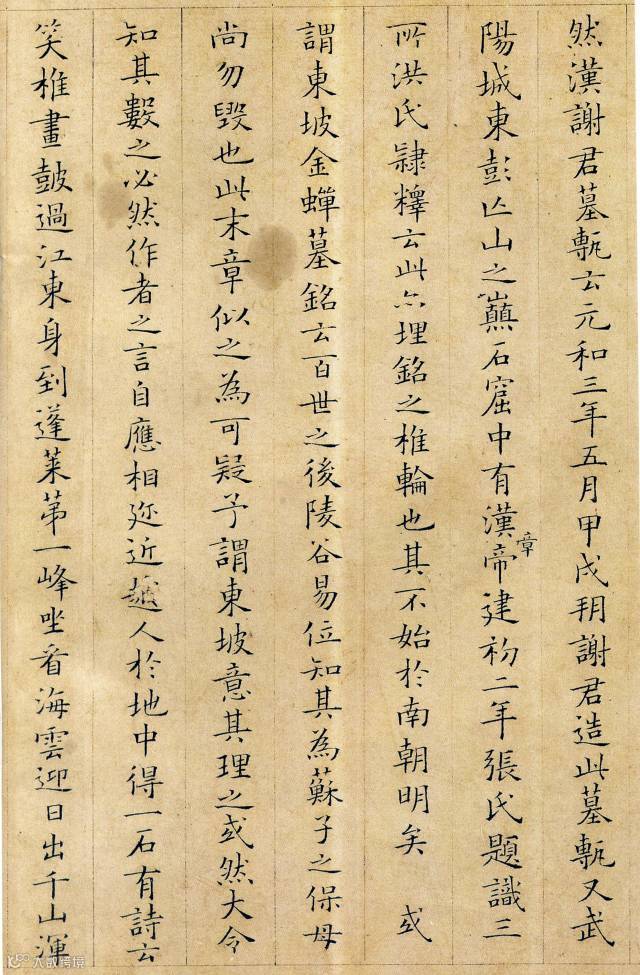 然漢謝君墓甎云元和三年五月甲戌朔謝君造此墓甎又武
陽城東彭亡山之巔石窟中有漢章帝建初二年張氏題識三
所洪氏隸釋云此亦埋銘之椎輪也其不始於南朝明矣 或
謂東坡金蟬墓銘云百世之後陵谷易位知其為蘇子之保母
尚勿毀也此末章似之為可疑予謂東坡意其理之或然大令
知其數之必然作者之言自應相近越人於地中得一石有詩云
笑椎畫鼓過江東身到蓬萊第一峰坐看海雲迎日出千山渾
大数跨境